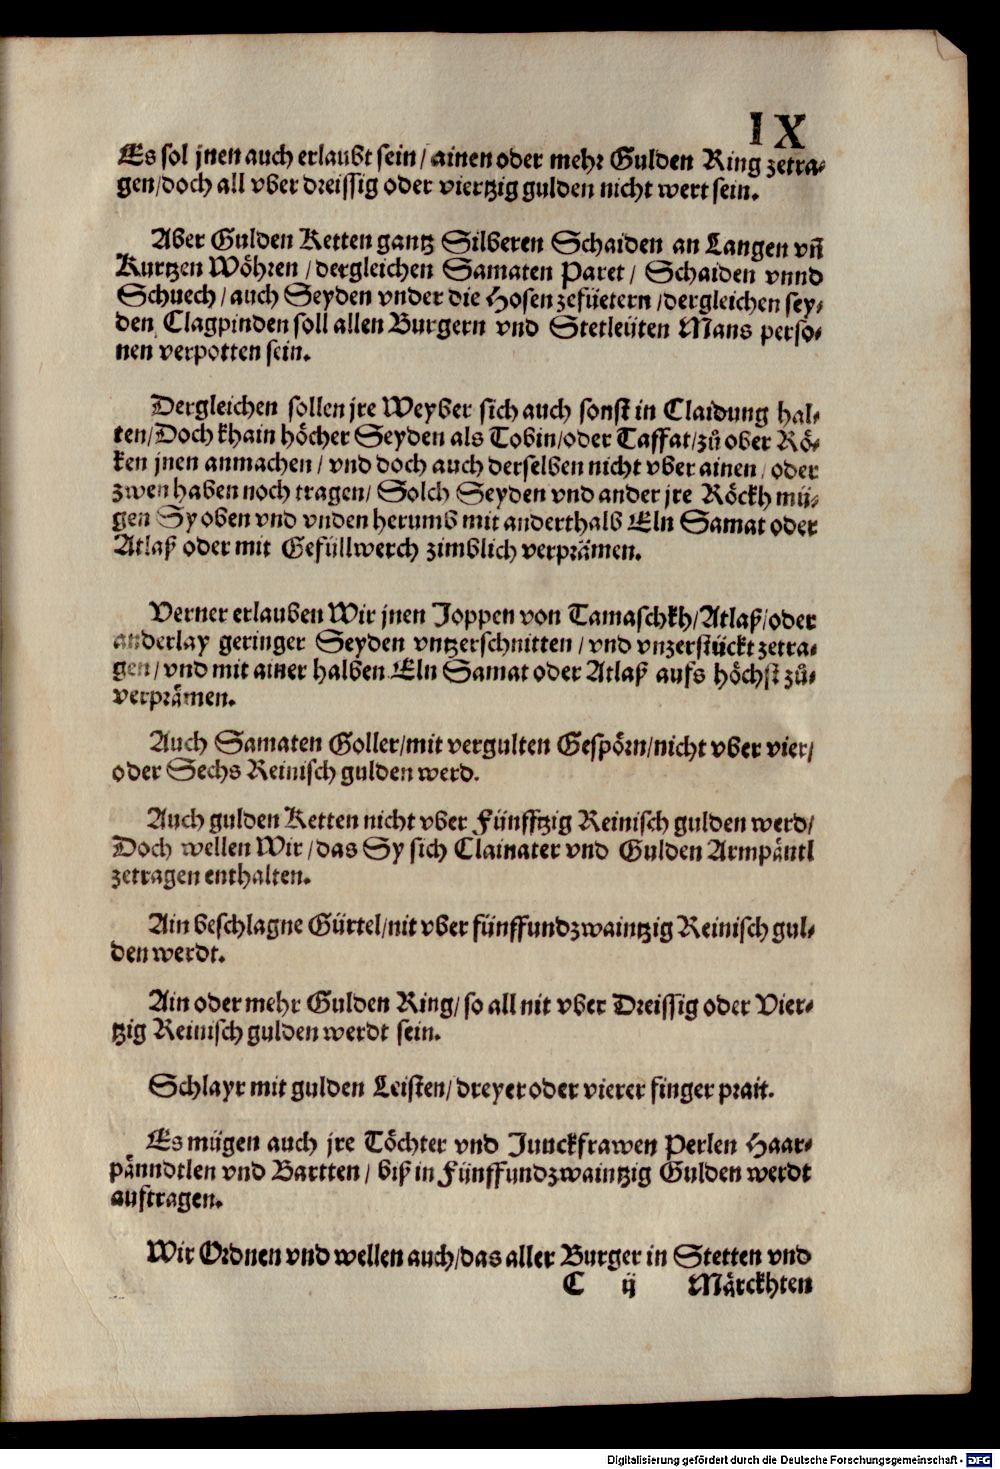 IX
Es sol jnen auch erlaubt sein / ainen oder mehr Gulden Ring zetra⸗
gen / doch all vber dreissig oder viertzig gulden nicht wert sein.
Aber Gulden Ketten gantz Silberen Schaiden an Langen vñ
Kurtzen Wöhren / dergleichen Samaten Paret / Schaiden vnnd
Schuech / auch Seyden vnder die Hosen zefüetern / dergleichen sey⸗
den Clagpinden soll allen Burgern vnd Stetleüten Mans perso⸗
nen verpotten sein.
Dergleichen sollen jre Weyber sich auch sonst in Claidung hal⸗
ten / Doch khain höcher Seyden als Tobin / oder Taffat / zů ober Rö⸗
ken jnen anmachen / vnd doch auch derselben nicht vber ainen / oder
zwen haben noch tragen / Solch Seyden vnd ander jre Röckh mü⸗
gen Sy oben vnd vnden herumb mit anderthalb Eln Samat oder
Atlaß oder mit Gefüllwerch zimblich verprämen.
Verner erlauben Wir jnen Joppen von Tamaschkh / Atlaß / oder
anderlay geringer Seyden vntzerschnitten / vnd vnzerstückt zetra⸗
gen / vnd mit ainer halben Eln Samat oder Atlaß aufs höchst zů⸗
verprämen.
Auch Samaten Goller / mit vergulten Gespörn / nicht vber vier /
oder Sechs Reinisch gulden werd.
Auch gulden Ketten nicht vber Fünfftzig Reinisch gulden werd /
Doch wellen Wir / das Sy sich Clainater vnd Gulden Armpäntl
zetragen enthalten.
Ain beschlagne Gürtel / nit vber fünffundzwaintzig Reinisch gul⸗
den werdt.
Ain oder mehr Gulden Ring / so all nit vber Dreissig oder Vier⸗
tzig Reinisch gulden werdt sein.
Schlayr mit gulden Leisten / dreyer oder vierer finger prait.
Es mügen auch jre Töchter vnd Junckfrawen Perlen Haar⸗
pänndtlen vnd Bartten / biß in Fünffundzwaintzig Gulden werdt
auftragen.
Wir Ordnen vnd wellen auch / das aller Burger in Stetten vnd
C ij Märckhten
Digitalisierung gefördert durch die Deutsche Forschungsgemeinschaft - DFG